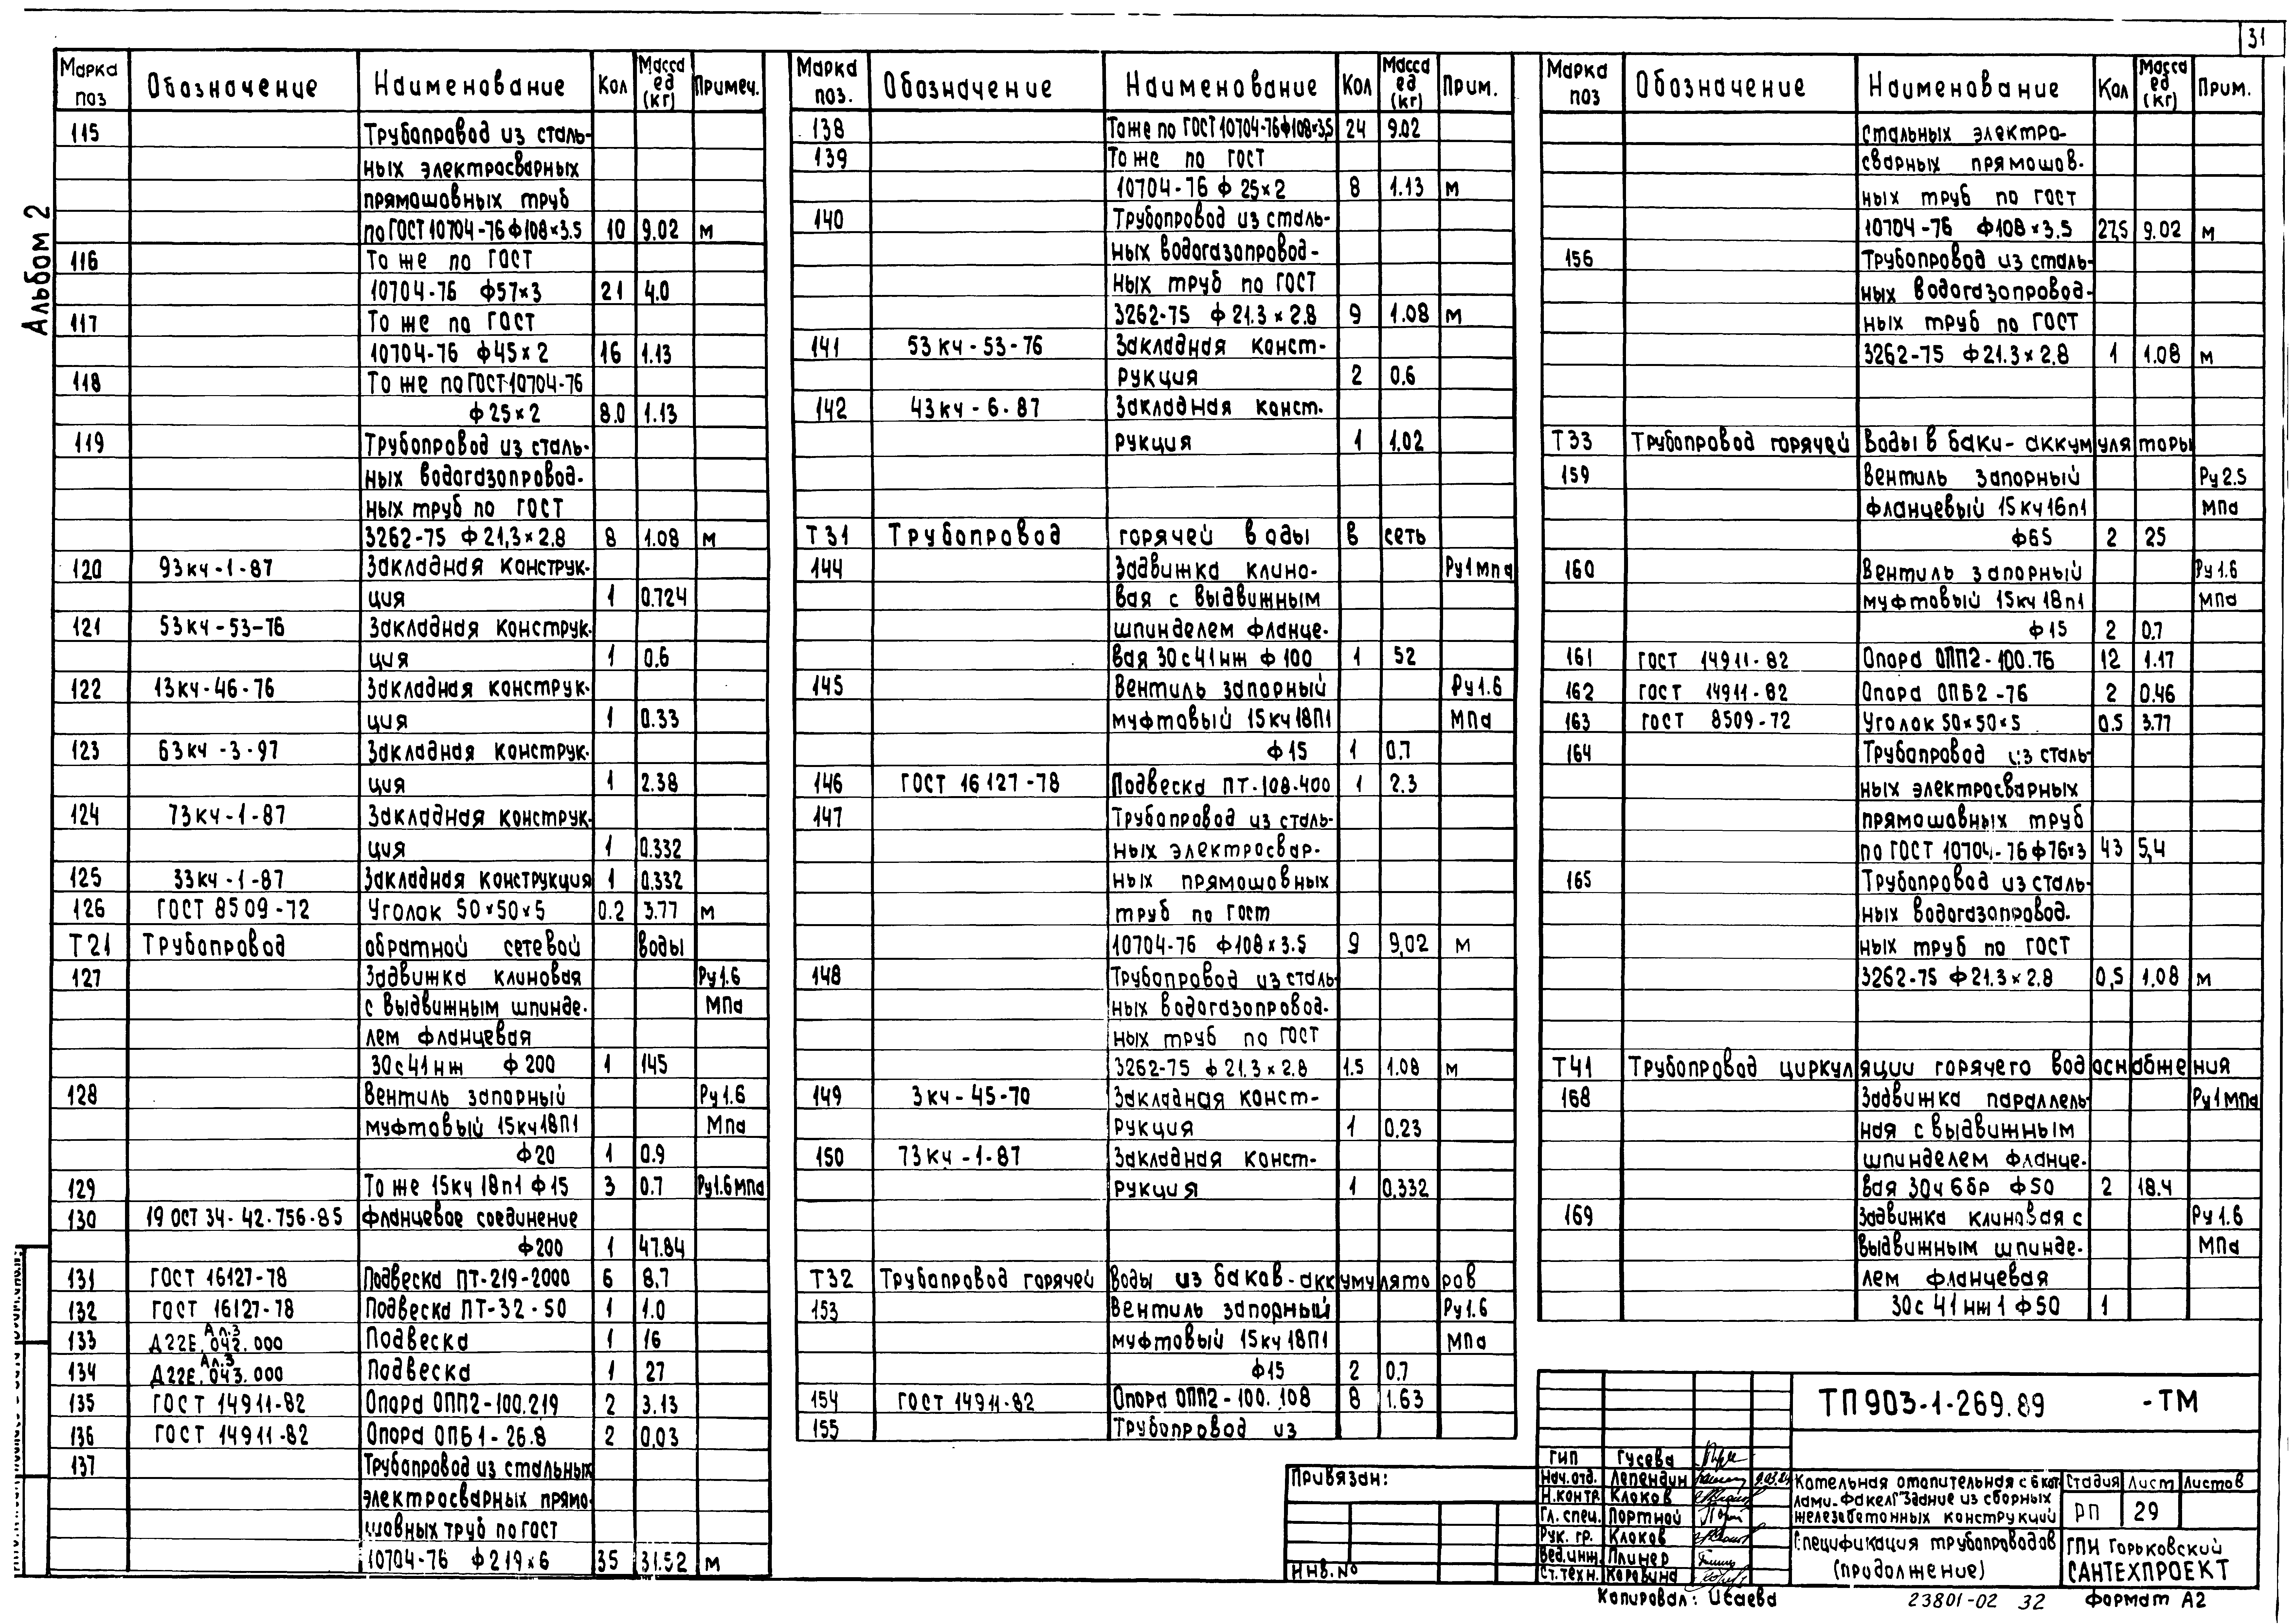 31
Альбом 2
Марка поз | Обозначение | Наименование | Кол | Масса ед (кг) | Примеч.
115 | Трубопровод из сталь-
ных электросварных
прямошовных труб
по ГОСТ 10704-76 ф108×3.5 | 10 | 9.02 | м
116 | То же по ГОСТ
10704-76 ф57×3 | 21 | 4.0
117 | То же по ГОСТ
10704-76 ф45×2 | 16 | 1.13
118 | То же по ГОСТ 10704-76
ф25×2 | 8.0 | 1.13
119 | Трубопровод из сталь-
ных водогазопровод-
ных труб по ГОСТ
3262-75 ф21,3×2.8 | 8 | 1.08 | м
120 | 93кч-1-87 | Закладная конструк-
ция | 1 | 0.724
121 | 53кч-53-76 | Закладная конструк-
ция | 1 | 0.6
122 | 13кч-46-76 | Закладная конструк-
ция | 1 | 0.33
123 | 63кч-3-97 | Закладная конструк-
ция | 1 | 2.38
124 | 73кч-1-87 | Закладная конструк-
ция | 1 | 0.332
125 | 33кч-1-87 | Закладная конструкция | 1 | 0.332
126 | ГОСТ 8509-72 | Уголок 50×50×5 | 0.2 | 3.77 | м
Т21 | Трубопровод обратной сетевой воды
127 | Задвижка клиновая | Ру1.6
с выдвижным шпинде- | МПа
лем фланцевая
30с41нж ф200 | 1 | 145
128 | Вентиль запорный | Ру1.6
муфтовый 15кч18П1 | МПа
ф20 | 1 | 0.9
129 | То же 15кч18п1 ф15 | 3 | 0.7 | Ру1.6МПа
130 | 19 ОСТ 34-42.756-85 | Фланцевое соединение
ф200 | 1 | 47.84
131 | ГОСТ 16127-78 | Подвеска ПТ-219-2000 | 6 | 8.7
132 | ГОСТ 16127-78 | Подвеска ПТ-32-50 | 1 | 1.0
133 | Д22Е.042.000 Ал.3 | Подвеска | 1 | 16
134 | Д22Е.043.000 Ал.3 | Подвеска | 1 | 27
135 | ГОСТ 14911-82 | Опора ОПП2-100.219 | 2 | 3.13
136 | ГОСТ 14911-82 | Опора ОПБ1-26.8 | 2 | 0,03
137 | Трубопровод из стальных
электросварных прямо-
шовных труб по ГОСТ
10704-76 ф219×6 | 35 | 31.52 | м
Марка поз. | Обозначение | Наименование | Кол | Масса ед (кг) | Прим.
138 | То же по ГОСТ 10704-76 ф108×3,5 | 24 | 9.02
139 | То же по ГОСТ
10704-76 ф25×2 | 8 | 1.13 | м
140 | Трубопровод из сталь-
ных водогазопровод-
ных труб по ГОСТ
3262-75 ф21.3×2.8 | 9 | 1.08 | м
141 | 53кч-53-76 | Закладная конст-
рукция | 2 | 0.6
142 | 43кч-6-87 | Закладная конст-
рукция | 1 | 1.02
Т31 | Трубопровод горячей воды в сеть
144 | Задвижка клино- | Ру1мпа
вая с выдвижным
шпинделем фланце-
вая 30с41нж ф100 | 1 | 52
145 | Вентиль запорный | Ру1.6
муфтовый 15кч18П1 | МПа
ф15 | 1 | 0.7
146 | ГОСТ 16127-78 | Подвеска ПТ-108-400 | 1 | 2.3
147 | Трубопровод из сталь-
ных электросвар-
ных прямошовных
труб по ГОСТ
10704-76 ф108×3.5 | 9 | 9,02 | м
148 | Трубопровод из сталь-
ных водогазопровод-
ных труб по ГОСТ
3262-75 ф21.3×2.8 | 1.5 | 1.08 | м
149 | 3кч-45-70 | Закладная конст-
рукция | 1 | 0.23
150 | 73кч-1-87 | Закладная конст-
рукция | 1 | 0.332
Т32 | Трубопровод горячей воды из баков-аккумуляторов
153 | Вентиль запорный | Ру1.6
муфтовый 15кч18П1 | МПа
ф15 | 2 | 0.7
154 | ГОСТ 14911-82 | Опора ОПП2-100.108 | 8 | 1.63
155 | Трубопровод из
Марка поз | Обозначение | Наименование | Кол | Масса ед (кг) | Прим.
стальных электро-
сварных прямошов-
ных труб по ГОСТ
10704-76 ф108×3.5 | 27,5 | 9.02 | м
156 | Трубопровод из сталь-
ных водогазопровод-
ных труб по ГОСТ
3262-75 ф21.3×2.8 | 1 | 1.08 | м
Т33 | Трубопровод горячей воды в баки-аккумуляторы
159 | Вентиль запорный | Ру2.5
фланцевый 15кч16п1 | МПа
ф65 | 2 | 25
160 | Вентиль запорный | Ру1.6
муфтовый 15кч18п1 | МПа
ф15 | 2 | 0.7
161 | ГОСТ 14911-82 | Опора ОПП2-100.76 | 12 | 1.17
162 | ГОСТ 14911-82 | Опора ОПБ2-76 | 2 | 0.46
163 | ГОСТ 8509-72 | Уголок 50×50×5 | 0.5 | 3.77
164 | Трубопровод из сталь-
ных электросварных
прямошовных труб
по ГОСТ 10704-76 ф76×3 | 43 | 5,4
165 | Трубопровод из сталь-
ных водогазопровод.
ных труб по ГОСТ
3262-75 ф21.3×2.8 | 0,5 | 1.08 | м
Т41 | Трубопровод циркуляции горячего водоснабжения
168 | Задвижка параллель- | Ру1МПа
ная с выдвижным
шпинделем фланце-
вая 30ч6бр ф50 | 2 | 18.4
169 | Задвижка клиновая с | Ру1.6
выдвижным шпинде- | МПа
лем фланцевая
30с41нж1 ф50 | 1
Привязан:
Инв.№
ТП903-1-269.89 -ТМ
ГИП Гусева
Нач.отд. Лепендин
Н.контр. Клоков
Гл. спец. Портной
Рук. гр. Клоков
Вед.инж. Плинер
Ст.техн. Коровина
Котельная отопительная с 6 кот-
лами „Факел" Здание из сборных
железобетонных конструкций
Стадия | Лист | Листов
РП | 29
Спецификация трубопроводов
(продолжение)
ГПИ Горьковский
САНТЕХПРОЕКТ
Копировал: Исаева
23801-02 32
Формат А2